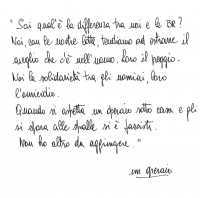 "Sai qual'è la differenza tra noi e le BR?
Noi, con le nostre lotte, tendiamo ad estrarre il
meglio che c'è nell'uomo, loro il peggio.
Noi la solidarietà tra gli uomini, loro
l'omicidio.
Quando si aspetta un operaio sotto casa e gli
si spara alle spalle si è fascisti.
Non ho altro da aggiungere."
un operaio